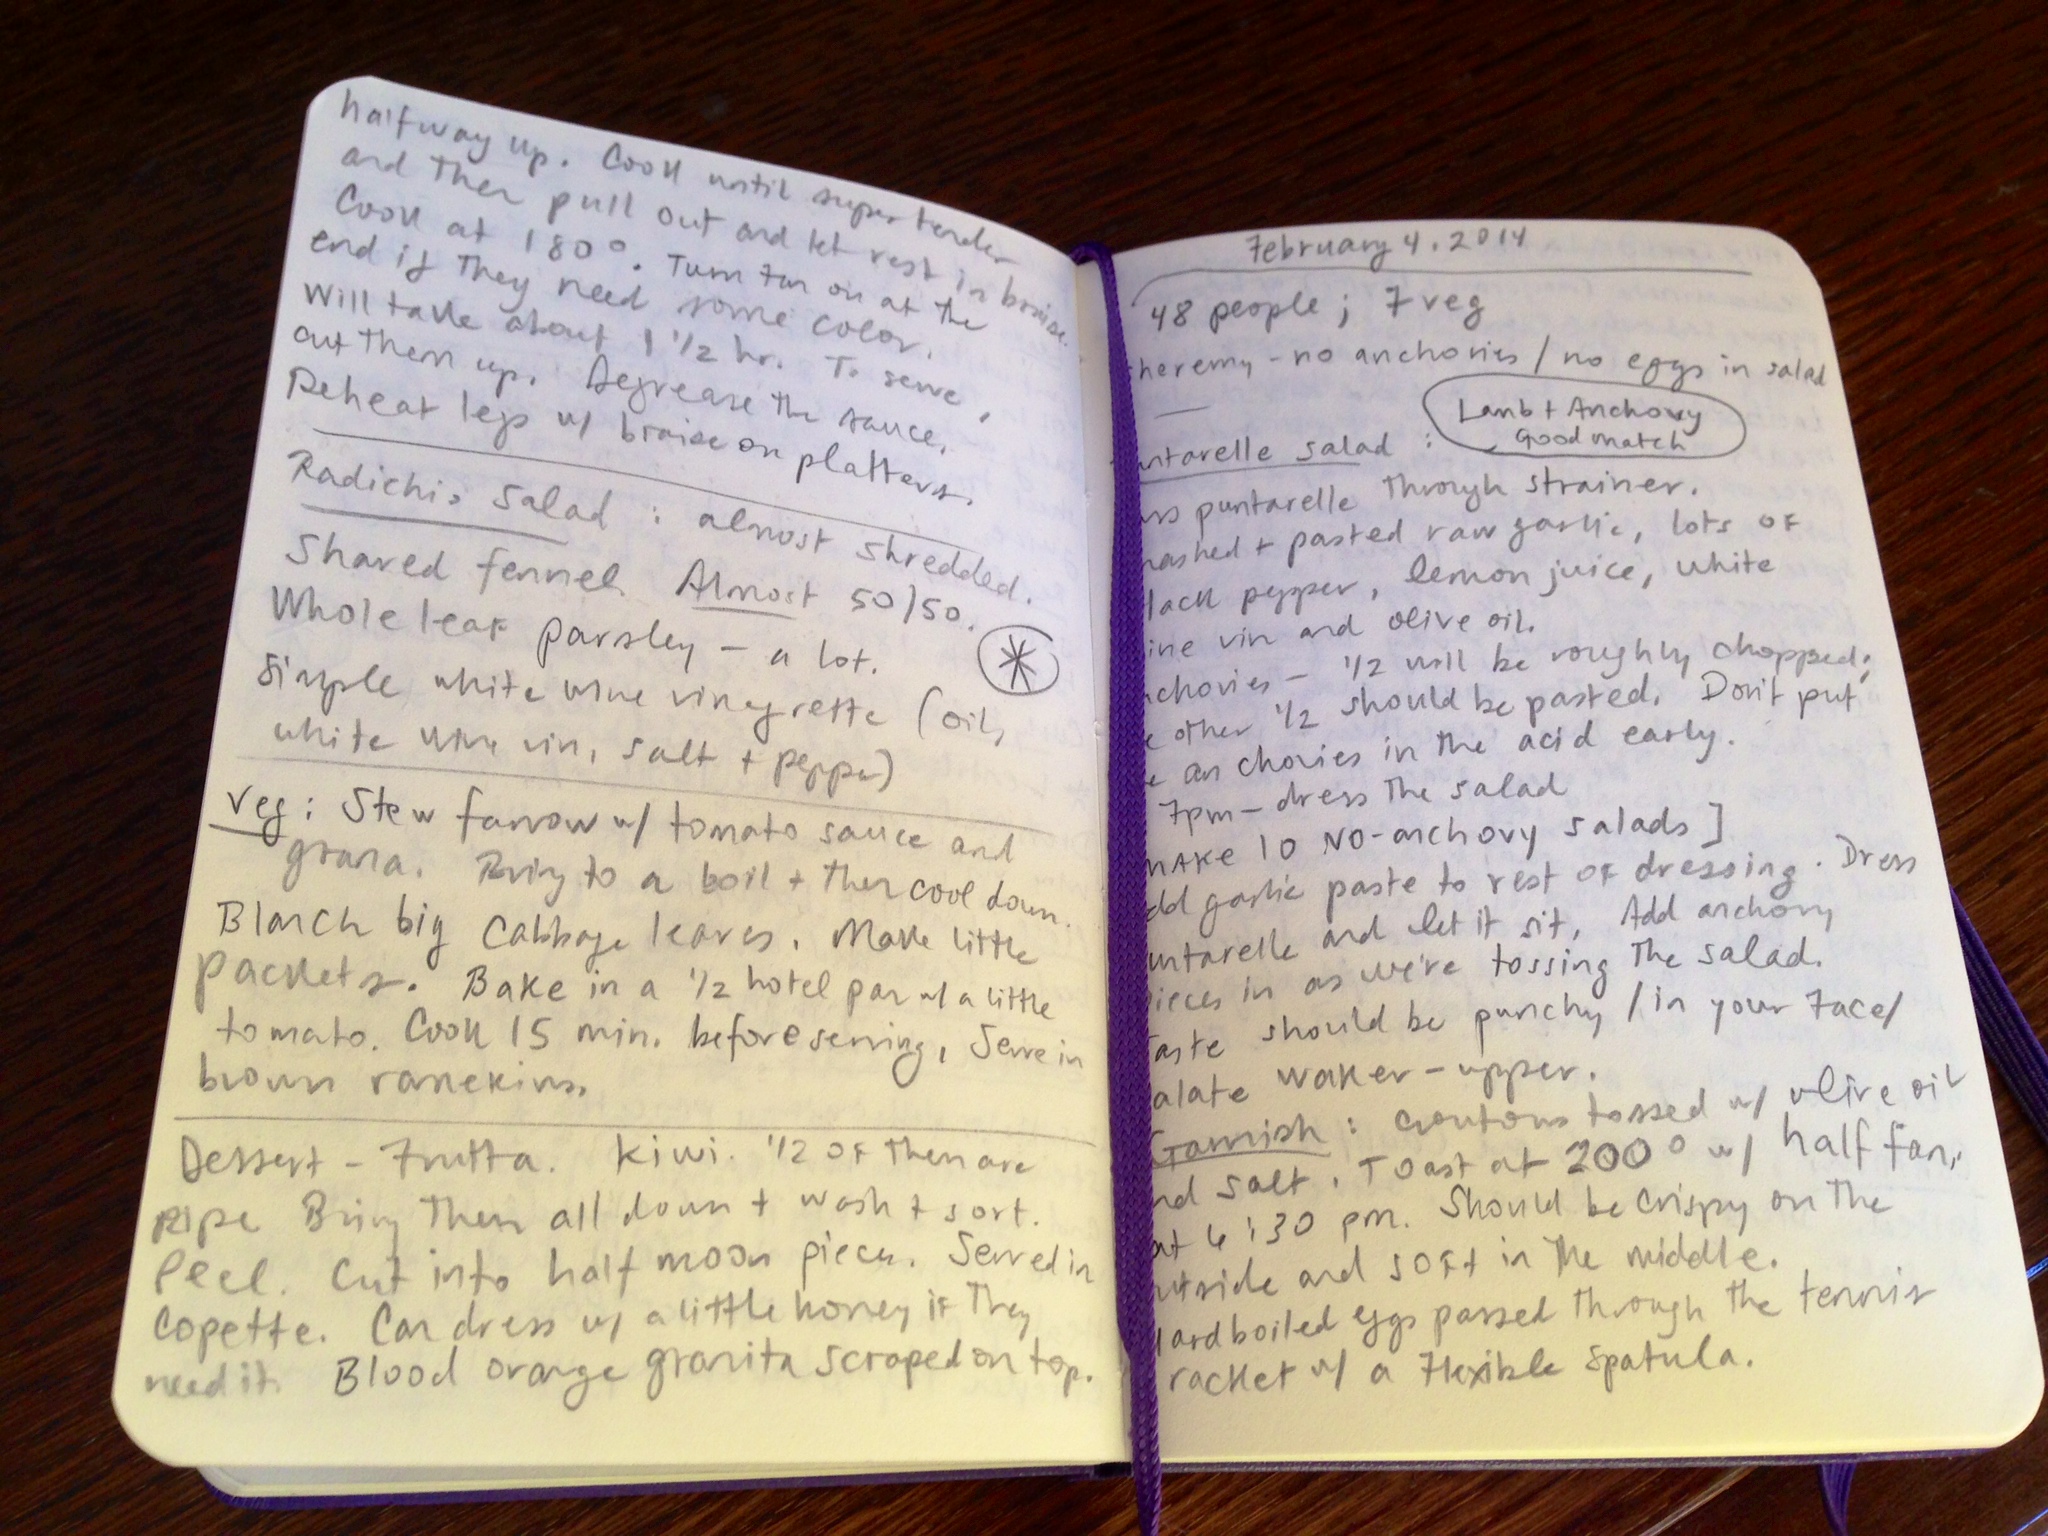 halfway up. Cook until super tender
and then pull out and let rest in braise.
Cook at 180°. Turn fan on at the
end if they need some color.
Will take about 1 1/2 hr. To serve,
cut them up. Degrease the sauce.
Reheat legs w/ braise on platters.
Radichio salad : almost shredded.
Shaved fennel Almost 50/50.
Whole leaf parsley - a lot.
Simple white wine vinegrette (oil,
white wine vin, salt + pepper)
Veg: Stew farrow w/ tomato sauce and
grana. Bring to a boil + then cool down.
Blanch big cabbage leaves. Make little
packets. Bake in a 1/2 hotel pan w/ a little
tomato. Cook 15 min. before serving. Serve in
brown ramekins.
Dessert - Frutta. Kiwi. 1/2 of them are
ripe Bring them all down + wash + sort.
Peel. Cut into half moon pieces. Served in
Copette. Can dress w/ a little honey if they
need it. Blood orange granita scraped on top.
February 4. 2014
48 people ; 7 veg
heremy - no anchovies / no eggs in salad
Lamb + Anchovy
Good match
ntarelle salad :
ss puntarelle through strainer.
ashed + pasted raw garlic, lots of
lack pepper, lemon juice, white
ine vin and olive oil.
chovies - 1/2 will be roughly chopped;
e other 1/2 should be pasted. Don't put
e anchovies in the acid early.
7pm - dress the salad
MAKE 10 NO-anchovy salads]
dd garlic paste to rest of dressing. Dress
untarelle and let it sit. Add anchovy
ieces in as we're tossing the salad.
aste should be punchy / in your face/
alate waker-upper.
Garnish : croutons tossed w/ olive oil
nd salt. Toast at 200° w/ half fan,
at 6:30 pm. Should be crispy on the
utside and soft in the middle.
Hardboiled eggs passed through the tennis
racket w/ a flexible spatula.